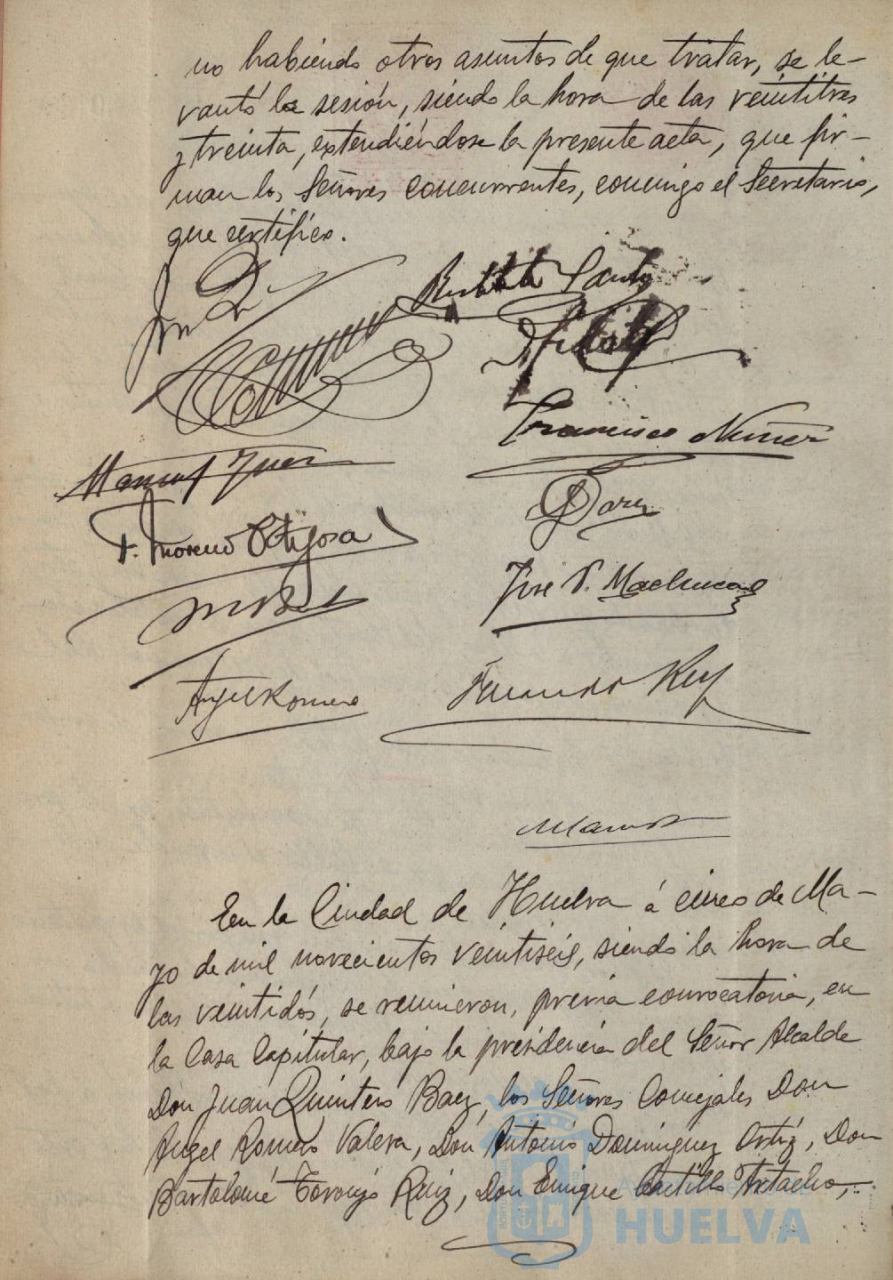 no habiendo otros asuntos de que tratar, se le-
vantó la sesión, siendo la hora de las veintitres
y treinta, extendiéndose la presente acta, que fir-
man los Señores concurrentes, conmigo el Secretario,
que certifico.
Francisco Nuñez
Manuel
F. Moreno
José P. Machuca
Angel Romero
Fernando Rey
En la Ciudad de Huelva á cinco de Ma-
yo de mil novecientos veintiséis, siendo la hora de
las veintidós, se reunieron, previa convocatoria, en
la Casa Capitular, bajo la presidencia del Señor Alcalde
Don Juan Quintero Baez, los Señores Concejales Don
Angel Romero Valera, Don Antonio Dominguez Ortiz, Don
Bartolomé Toronjo Ruiz, Don Enrique Castillo Artacho,
HUELVA